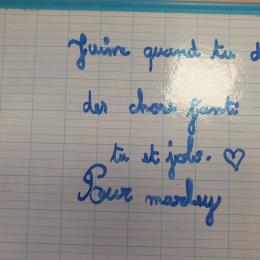 J'aime quand tu d
des chose genti
tu et joli. ♡
Pour marley